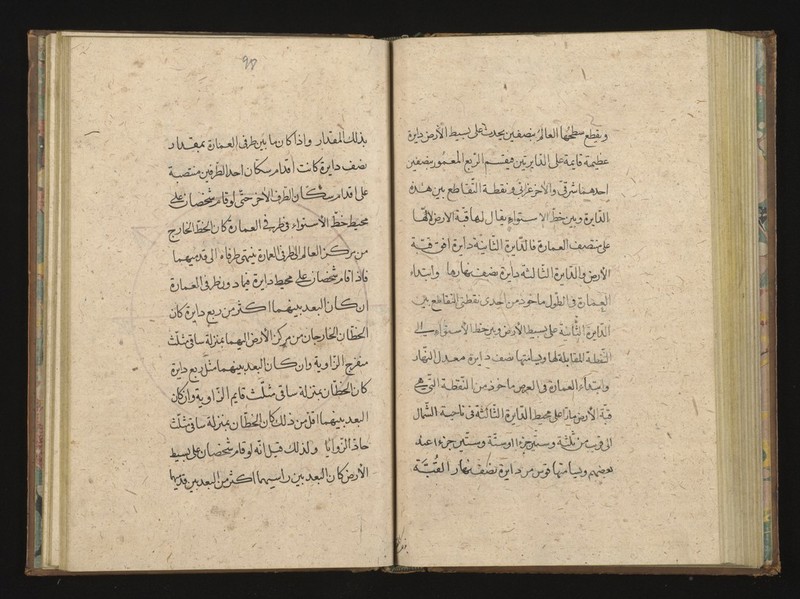 ويقطع سطحها العالم بنصفين يحدث على بسيط الأرض دايرة
عظيمة قايمة على الدايرتين فيقسم الربع المعمور بنصفين
احدهما شرقي والآخر غربي ونقطة التقاطع بين هذه
الدايرة وبين خط الاستواء يقال لها قبة الارض لانها
على منتصف العمارة فالدايرة الثانية دايرة افق قبة
الأرض والدايرة الثالثة دايرة نصف نهارها وابتداء
العمارة في الطول مأخوذ من احدى نقطتي التقاطع بين
الدايرة الثانية على بسيط الأرض وبين خط الاستواء الى
النقطة المقابلة لها ويسامتها نصف دايرة معدل النهار
وابتداء العمارة في العرض مأخوذ من النقطة التي هي
قبة الارض مارا على محيط الدايرة الثالثة في ناحية الشمال
الى قرب من ثلثة وستين جزءا او ستة وستين جزءا عند
بعضهم ويسامتها قوس من دايرة نصف نهار القبة
٩٣
بذلك المقدار واذا كان ما بين طرفي العمارة بمقدار
نصف دايرة كانت اقدام سكان احد الطرفين منتصبة
على اقدام سكان الطرف الآخر حتى لو قام شخصان على
محيط خط الاستواء في طرفي العمارة كان الخط الخارج
من مركز العالم الى طرفي العمارة ينتهي طرفاه الى قدميهما
فاذا قام شخصان على محيط دايرة فيما دون طرفي العمارة
ان كان البعد بينهما اكثر من ربع دايرة كان
الخطان الخارجان من مركز الأرض اليهما بمنزلة ساقي مثلث
منفرج الزاوية وان كان البعد بينهما مثل ربع دايرة
كان الخطان بمنزلة ساقي مثلث قايم الزاوية وان كان
البعد بينهما اقل من ذلك كان الخطان بمنزلة ساقي مثلث
حاد الزوايا ولذلك قيل انه لو قام شخصان على بسيط
الأرض كان البعد بين راسيهما اكثر من البعد بين قدميهما